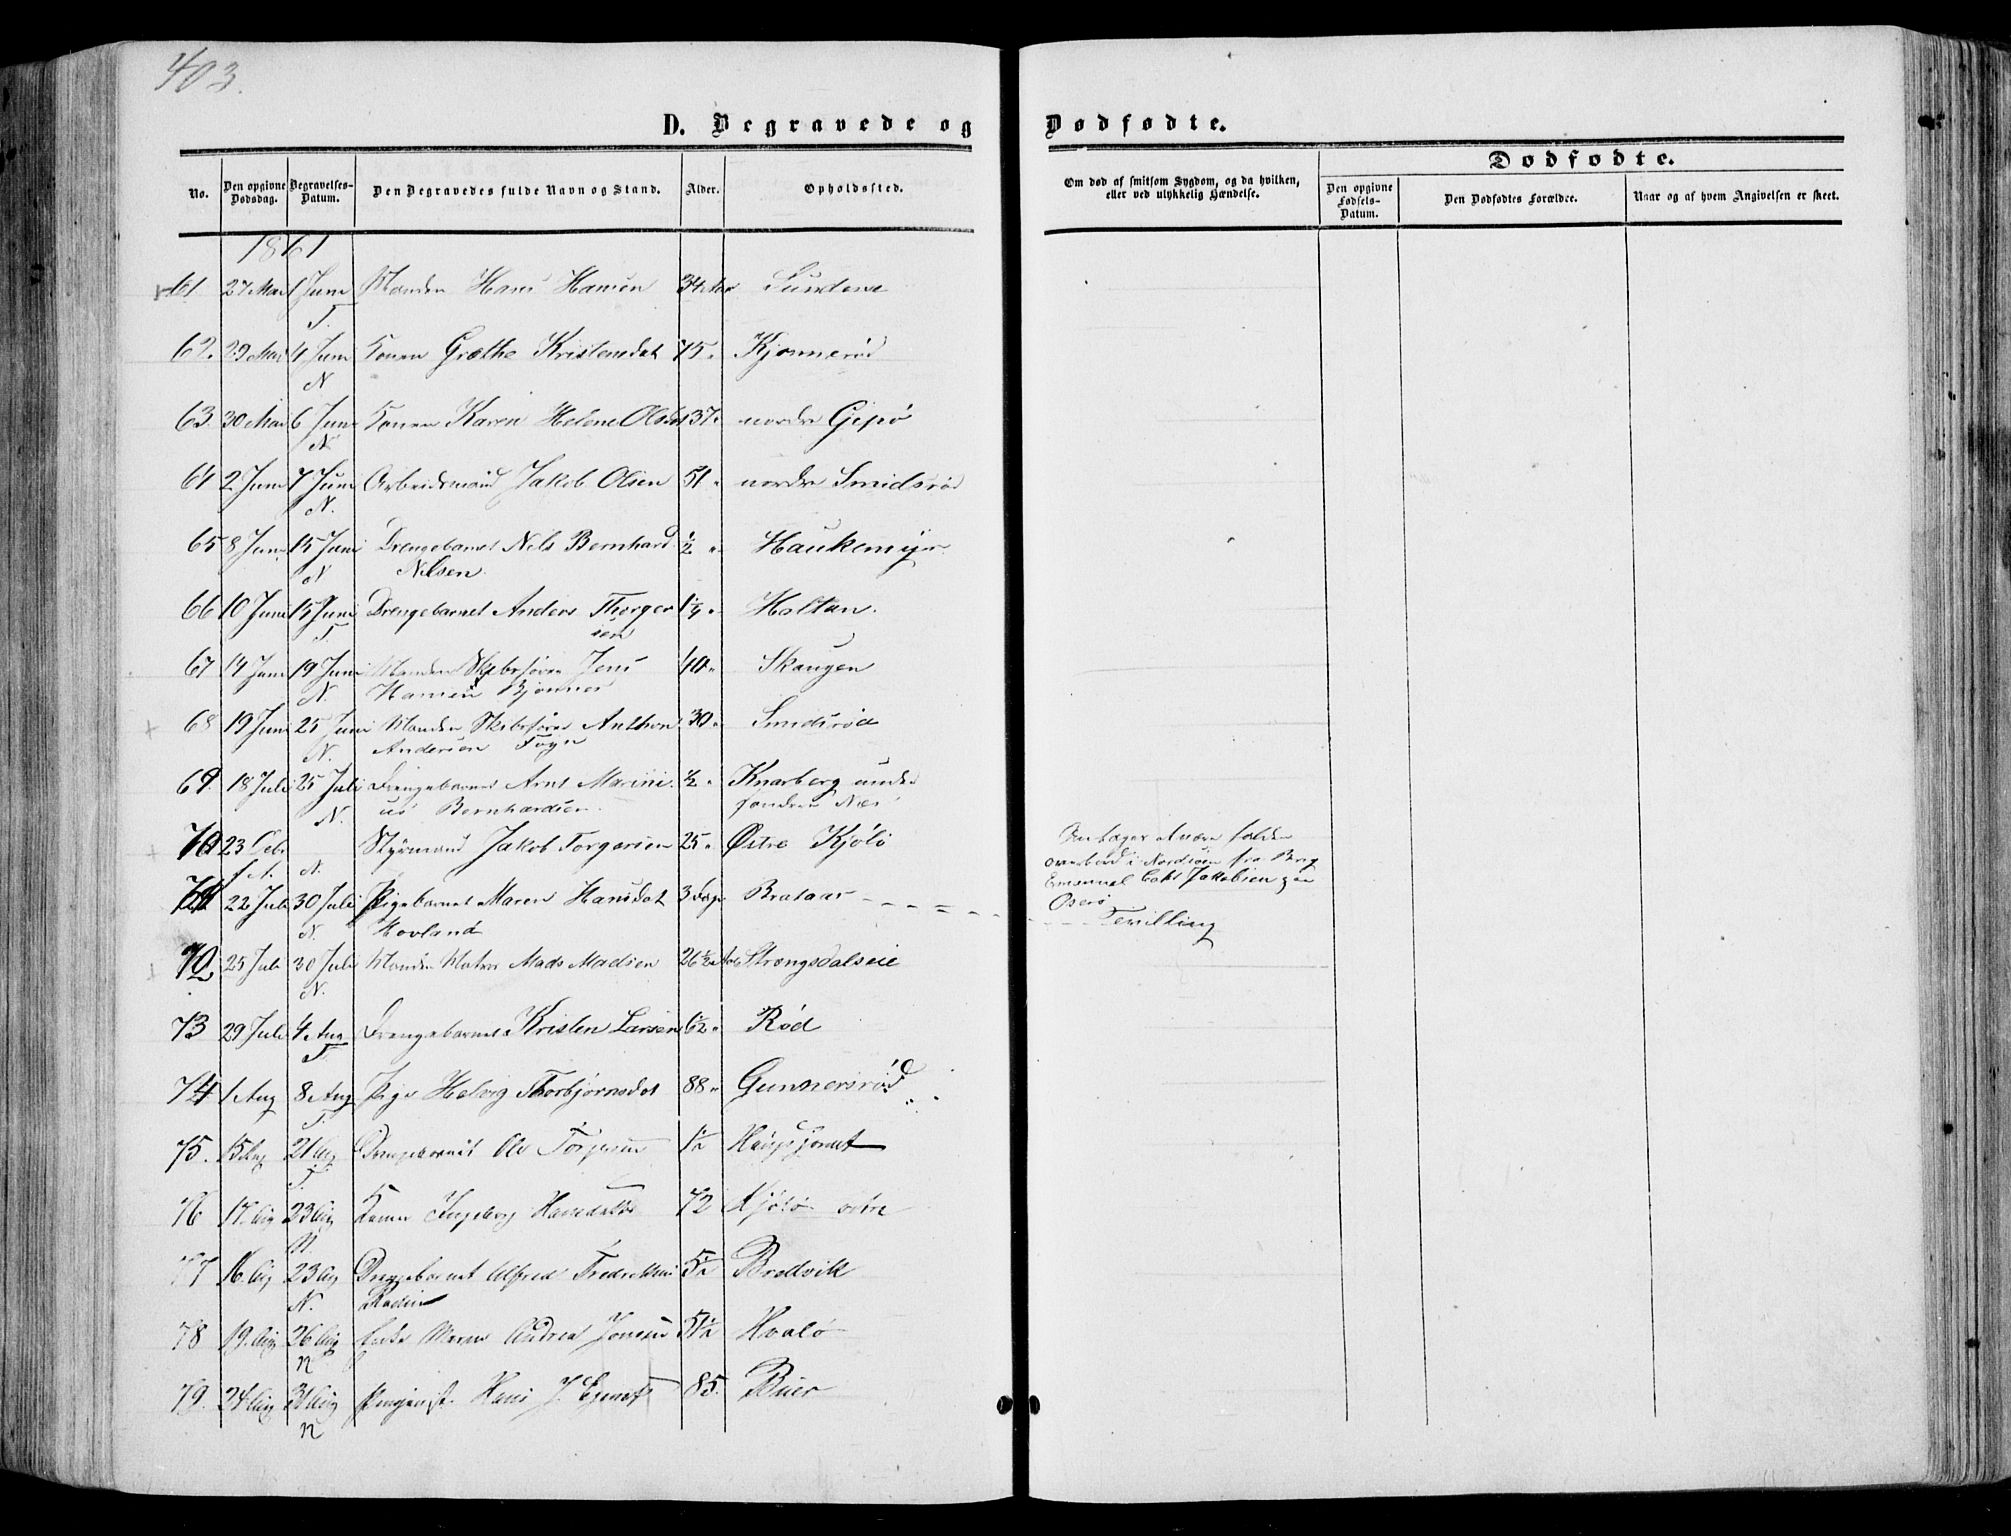 403.
D. Begravede og Dødfødte.
Dødfødte.
No. Den opgivne Dødsdag. Begravelses-Datum. Den Begravedes fulde Navn og Stand. Alder. Opholdssted. Om død af smitsom Sygdom, og da hvilken, eller ved ulykkelig Hændelse. Den opgivne Fødsels-Datum. Den Dødfødtes Forældre. Naar og af hvem Angivelsen er skeet.
1861
61 27 Mai 1 Juni Manden Hans Hansen 34 Aar Sundene
T.
62. 29 Mai 4 Juni Konen Grethe Kristensdat 75 " Kjonnerød
N
63. 30 Mai 6 Juni Konen Karen Helene Olsdat 37 " nordre Gipø
N.
64 2 Juni 7 Juni Arbeidsmand Jakob Olsen 51 " nordre Smidsrød
N.
65 8 Juni 15 Juni Drengebarnet Nels Bernhard ½ " Haukemyr
N Nilsen
66 10 Juni 15 Juni Drengebarnet Anders Thorger 1¼ " Holtan.
T. sen
67 14 Juni 19 Juni Manden Skibsfører Jens 40 " Skaugen
N. Hansen Bjønnes
68 19 Juni 25 Juni Manden Skibsfører Anthon 30 " Smidsrød
N. Andersen
69. 18 Juli 25 Juli Drengebarnet Arnt Marini ½ " Knarberg under
N. us Bernhardsen. søndre Næs
70 23 Styrmand Jakob Torgersen 25 " Østre Kjølø
f. A. N.
overbord i Nordsøen fra Brig
Emanuel Capt Jakobsen
71 22 Juli 30 Juli Pigebarnet Maren Hansdat 3 Dage Brataas
N. Hovland Tvilling
72 25 Juli 30 Juli Manden Matros Mads Madsen 26½ Aar Strengsdalseie
N.
73 29 Juli 4 Aug Drengebarnet Kristen Larsen 6½ " Rød
T.
74 1 Aug 8 Aug Pige Helvig Thorbjørnsdat 88 " Gunnersrød
T.
75. 15 Aug 21 Aug Drengebarnet Ole Torgersen 1½
T.
76 17. Aug 23 Aug Konen Ingeborg Hansdatter 72 Kjølø østre
N.
77 16. Aug 23 Aug Drengebarnet Alfred Fredriksen 5½ Bredvik
N.
78 19. Aug 26 Aug Enke Maren Andrea Jensen 51½ Hvalø
N
79. 24 Aug 31 Aug Hans J. 85. Buer
N